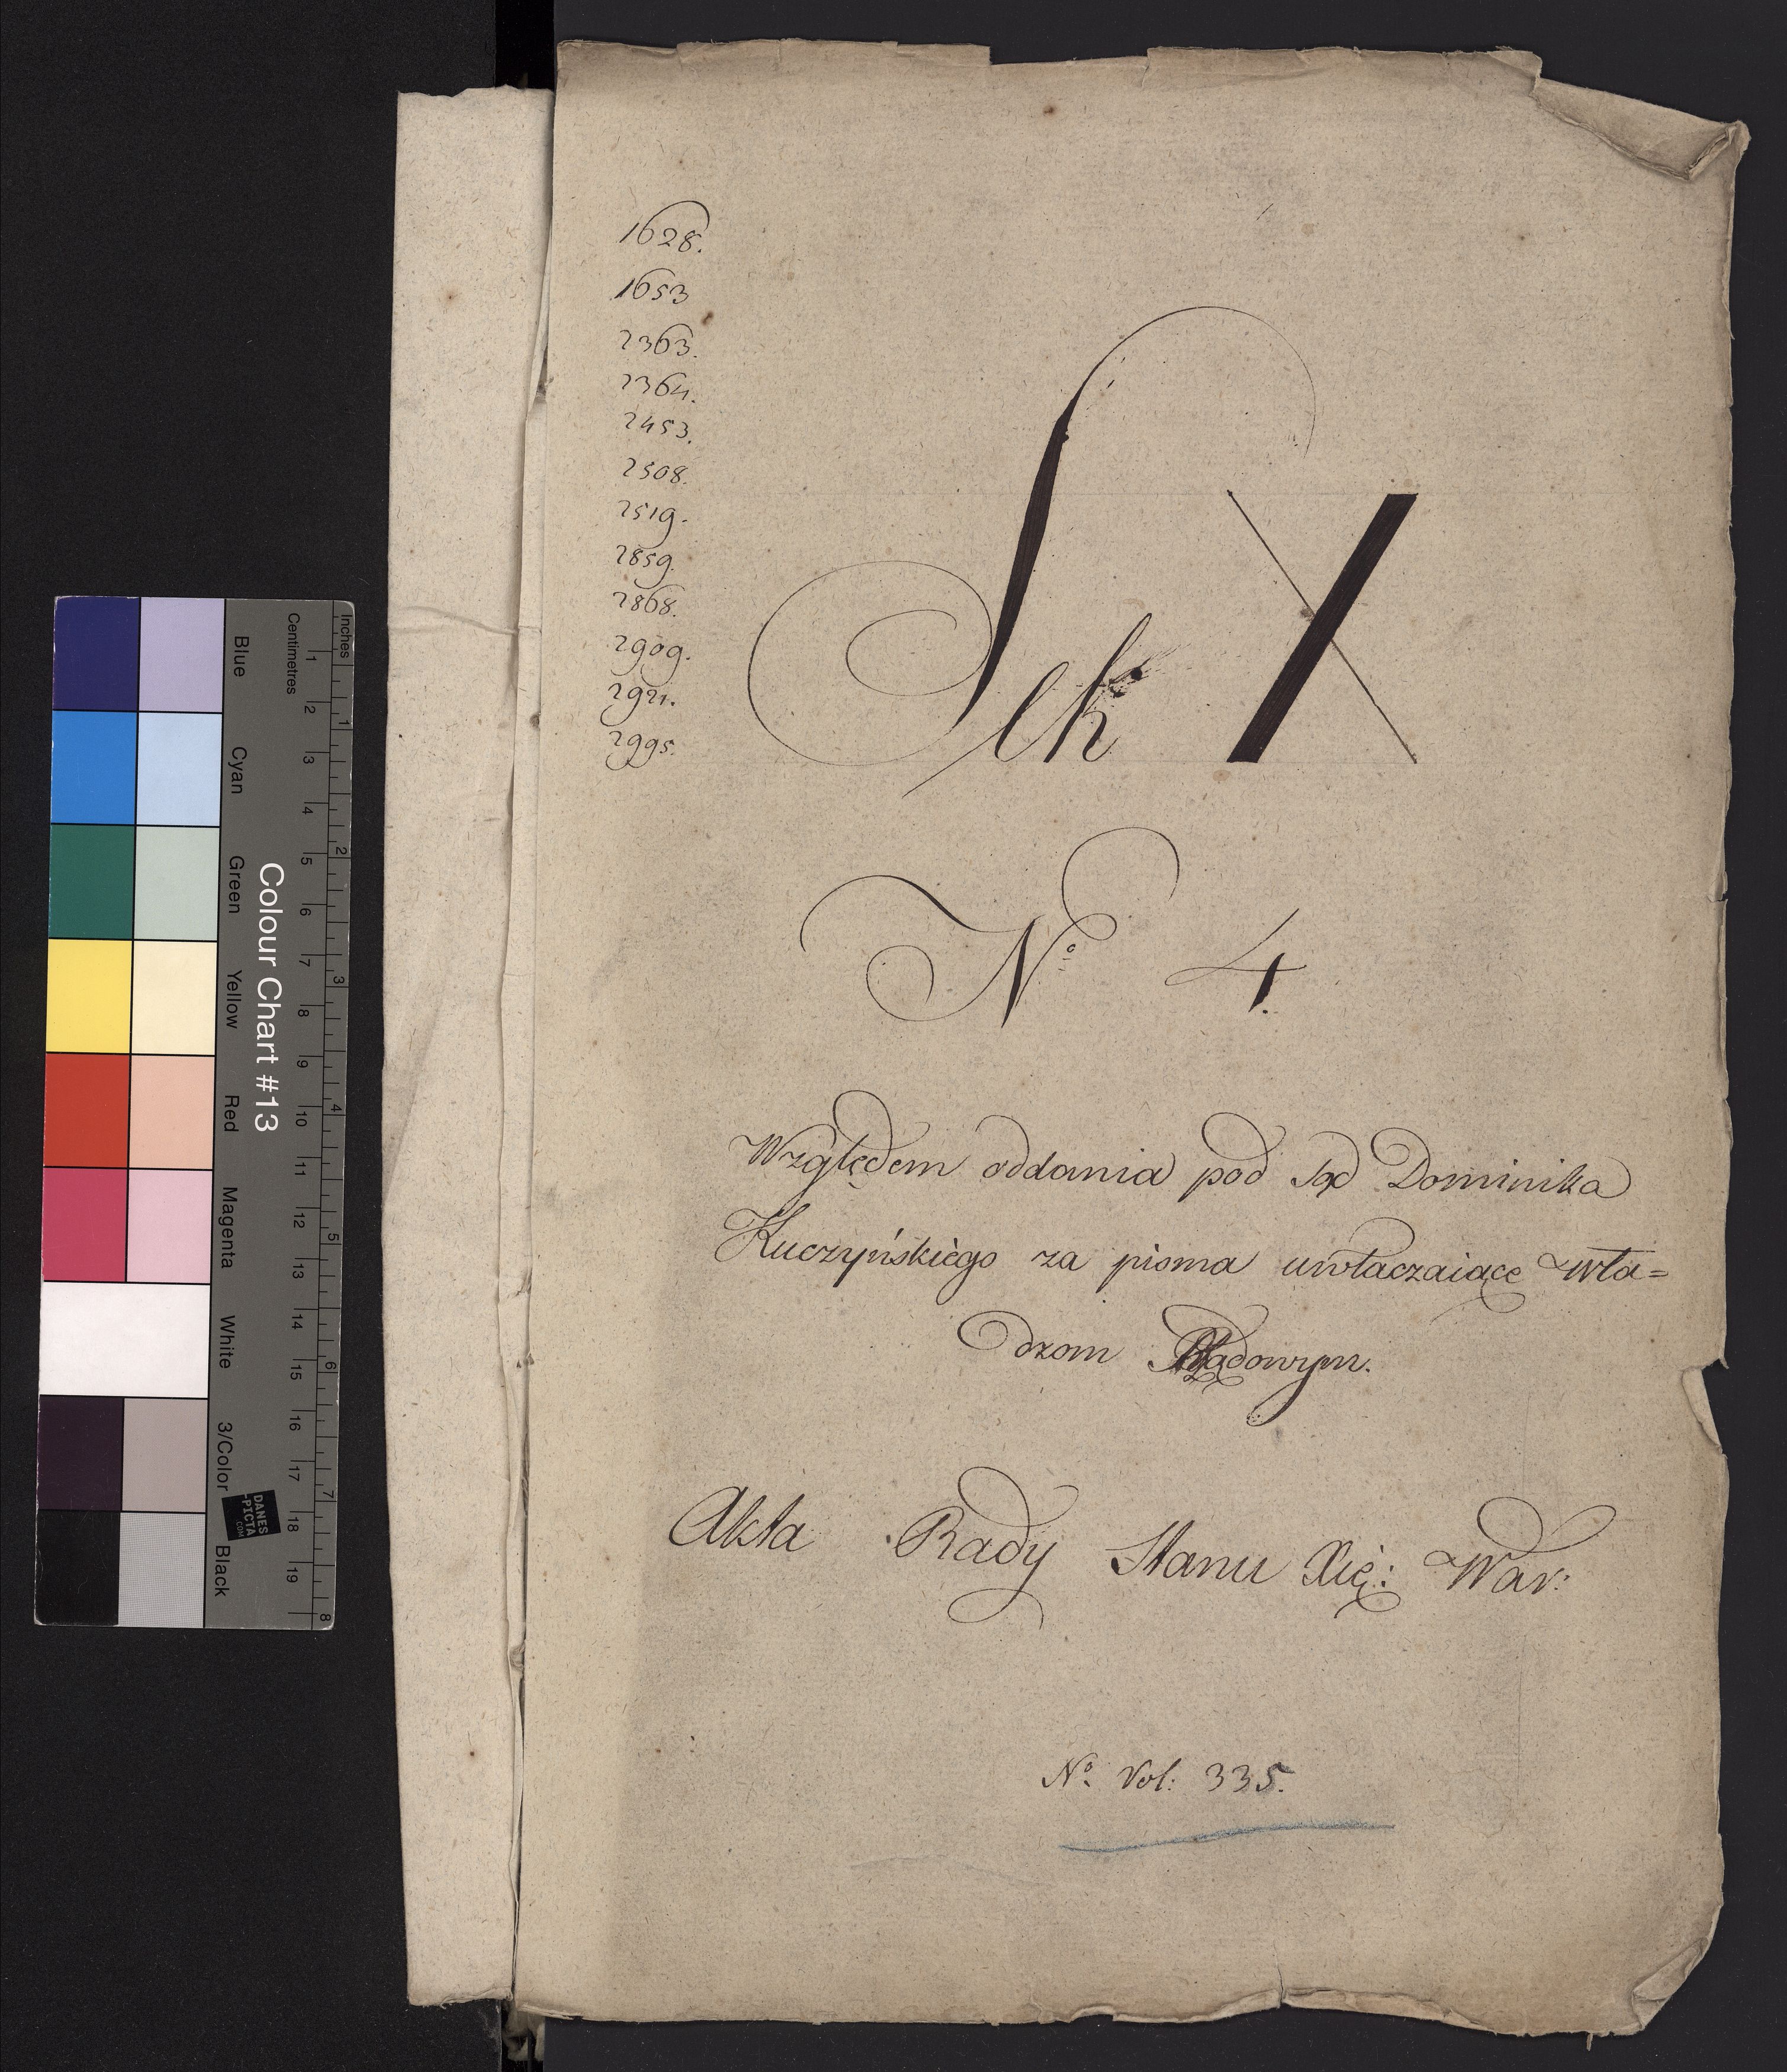 1628.
1653
2363.
2364.
2453.
2508.
2519.
2859.
2868.
2909.
2921.
2995.
Sek X
No 4.
Względem oddania pod Sąd Dominika
Kuczyńskiégo za pisma uwłaczaiące Wła=
dzom Rządowym.
Akta Rady Stanu Xię: War:
No. Vol: 335.
Colour Chart #13
Blue
Cyan
Green
Yellow
Red
Magenta
White
3/Color
Black
Centimetres
1 2 3 4 5 6 7 8 9 10 11 12 13 14 15 16 17 18 19
Inches
1 2 3 4 5 6 7 8
DANES
-PICTA
.COM